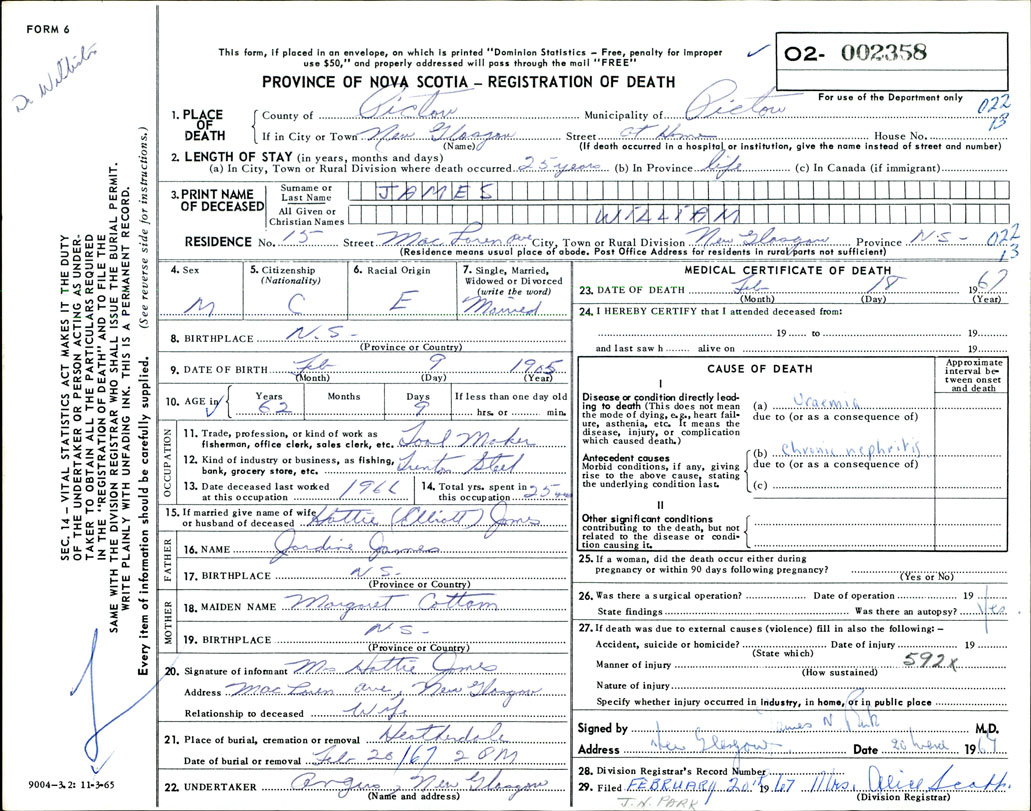 FORM 6
This form, if placed in an envelope, on which is printed "Dominion Statistics – Free, penalty for improper
use $50," and properly addressed will pass through the mail "FREE"
PROVINCE OF NOVA SCOTIA – REGISTRATION OF DEATH
02- 002358
For use of the Department only
022
13
1. PLACE OF DEATH County of Pictou Municipality of Pictou
If in City or Town New Glasgow Street at Home House No.
(Name) (If death occurred in a hospital or institution, give the name instead of street and number)
2. LENGTH OF STAY (in years, months and days)
(a) In City, Town or Rural Division where death occurred 25 years (b) In Province life (c) In Canada (if immigrant)
3. PRINT NAME OF DECEASED Surname or Last Name JAMES
All Given or Christian Names WILLIAM
RESIDENCE No. 15 Street MacLaren Ave City, Town or Rural Division New Glasgow Province N.S- 022
(Residence means usual place of abode. Post Office Address for residents in rural parts not sufficient) 13
4. Sex M
5. Citizenship (Nationality) C
6. Racial Origin E
7. Single, Married, Widowed or Divorced (write the word) Married
8. BIRTHPLACE N.S-
(Province or Country)
9. DATE OF BIRTH Feb 9 1905
(Month) (Day) (Year)
10. AGE in Years 62 Months Days 9 If less than one day old
hrs. or min.
OCCUPATION
11. Trade, profession, or kind of work as fisherman, office clerk, sales clerk, etc. Tool Maker
12. Kind of industry or business, as fishing, bank, grocery store, etc. Trenton Steel
13. Date deceased last worked at this occupation 1966 14. Total yrs. spent in this occupation 25
15. If married give name of wife or husband of deceased Hattie (Elliott) James
FATHER
16. NAME Jardine James
17. BIRTHPLACE N.S-
(Province or Country)
MOTHER
18. MAIDEN NAME Margaret Cottam
19. BIRTHPLACE N.S-
(Province or Country)
20. Signature of informant Mrs Hattie James
Address MacLaren ave, New Glasgow
Relationship to deceased Wife
21. Place of burial, cremation or removal Heatherdale
Date of burial or removal Feb 20/67 2 PM
22. UNDERTAKER Angus, New Glasgow
(Name and address)
MEDICAL CERTIFICATE OF DEATH
23. DATE OF DEATH Feb 18 1967
(Month) (Day) (Year)
24. I HEREBY CERTIFY that I attended deceased from:
19 to 19
and last saw h alive on 19
CAUSE OF DEATH
Approximate interval between onset and death
I
Disease or condition directly leading to death (This does not mean the mode of dying, e.g., heart failure, asthenia, etc. It means the disease, injury, or complication which caused death.)
(a) Uraemia
due to (or as a consequence of)
Antecedent causes
Morbid conditions, if any, giving rise to the above cause, stating the underlying condition last.
(b) Chronic nephritis
due to (or as a consequence of)
(c)
II
Other significant conditions
contributing to the death, but not related to the disease or condition causing it.
25. If a woman, did the death occur either during pregnancy or within 90 days following pregnancy?
(Yes or No)
26. Was there a surgical operation? Date of operation 19
State findings Was there an autopsy? Yes
27. If death was due to external causes (violence) fill in also the following: –
Accident, suicide or homicide? Date of injury 19
(State which)
Manner of injury 592x
(How sustained)
Nature of injury
Specify whether injury occurred in industry, in home, or in public place
Signed by James N. Park M.D.
Address New Glasgow Date 20 1967
28. Division Registrar's Record Number
29. Filed FEBRUARY 20th 1967 Mrs. Alice Scott
J.N. PARK (Division Registrar)
SEC. 14 – VITAL STATISTICS ACT MAKES IT THE DUTY
OF THE UNDERTAKER OR PERSON ACTING AS UNDER-
TAKER TO OBTAIN ALL THE PARTICULARS REQUIRED
IN THE "REGISTRATION OF DEATH" AND TO FILE THE
SAME WITH THE DIVISION REGISTRAR WHO SHALL ISSUE THE BURIAL PERMIT.
WRITE PLAINLY WITH UNFADING INK. THIS IS A PERMANENT RECORD.
Every item of information should be carefully supplied. (See reverse side for instructions.)
9004-3.2: 11-3-65